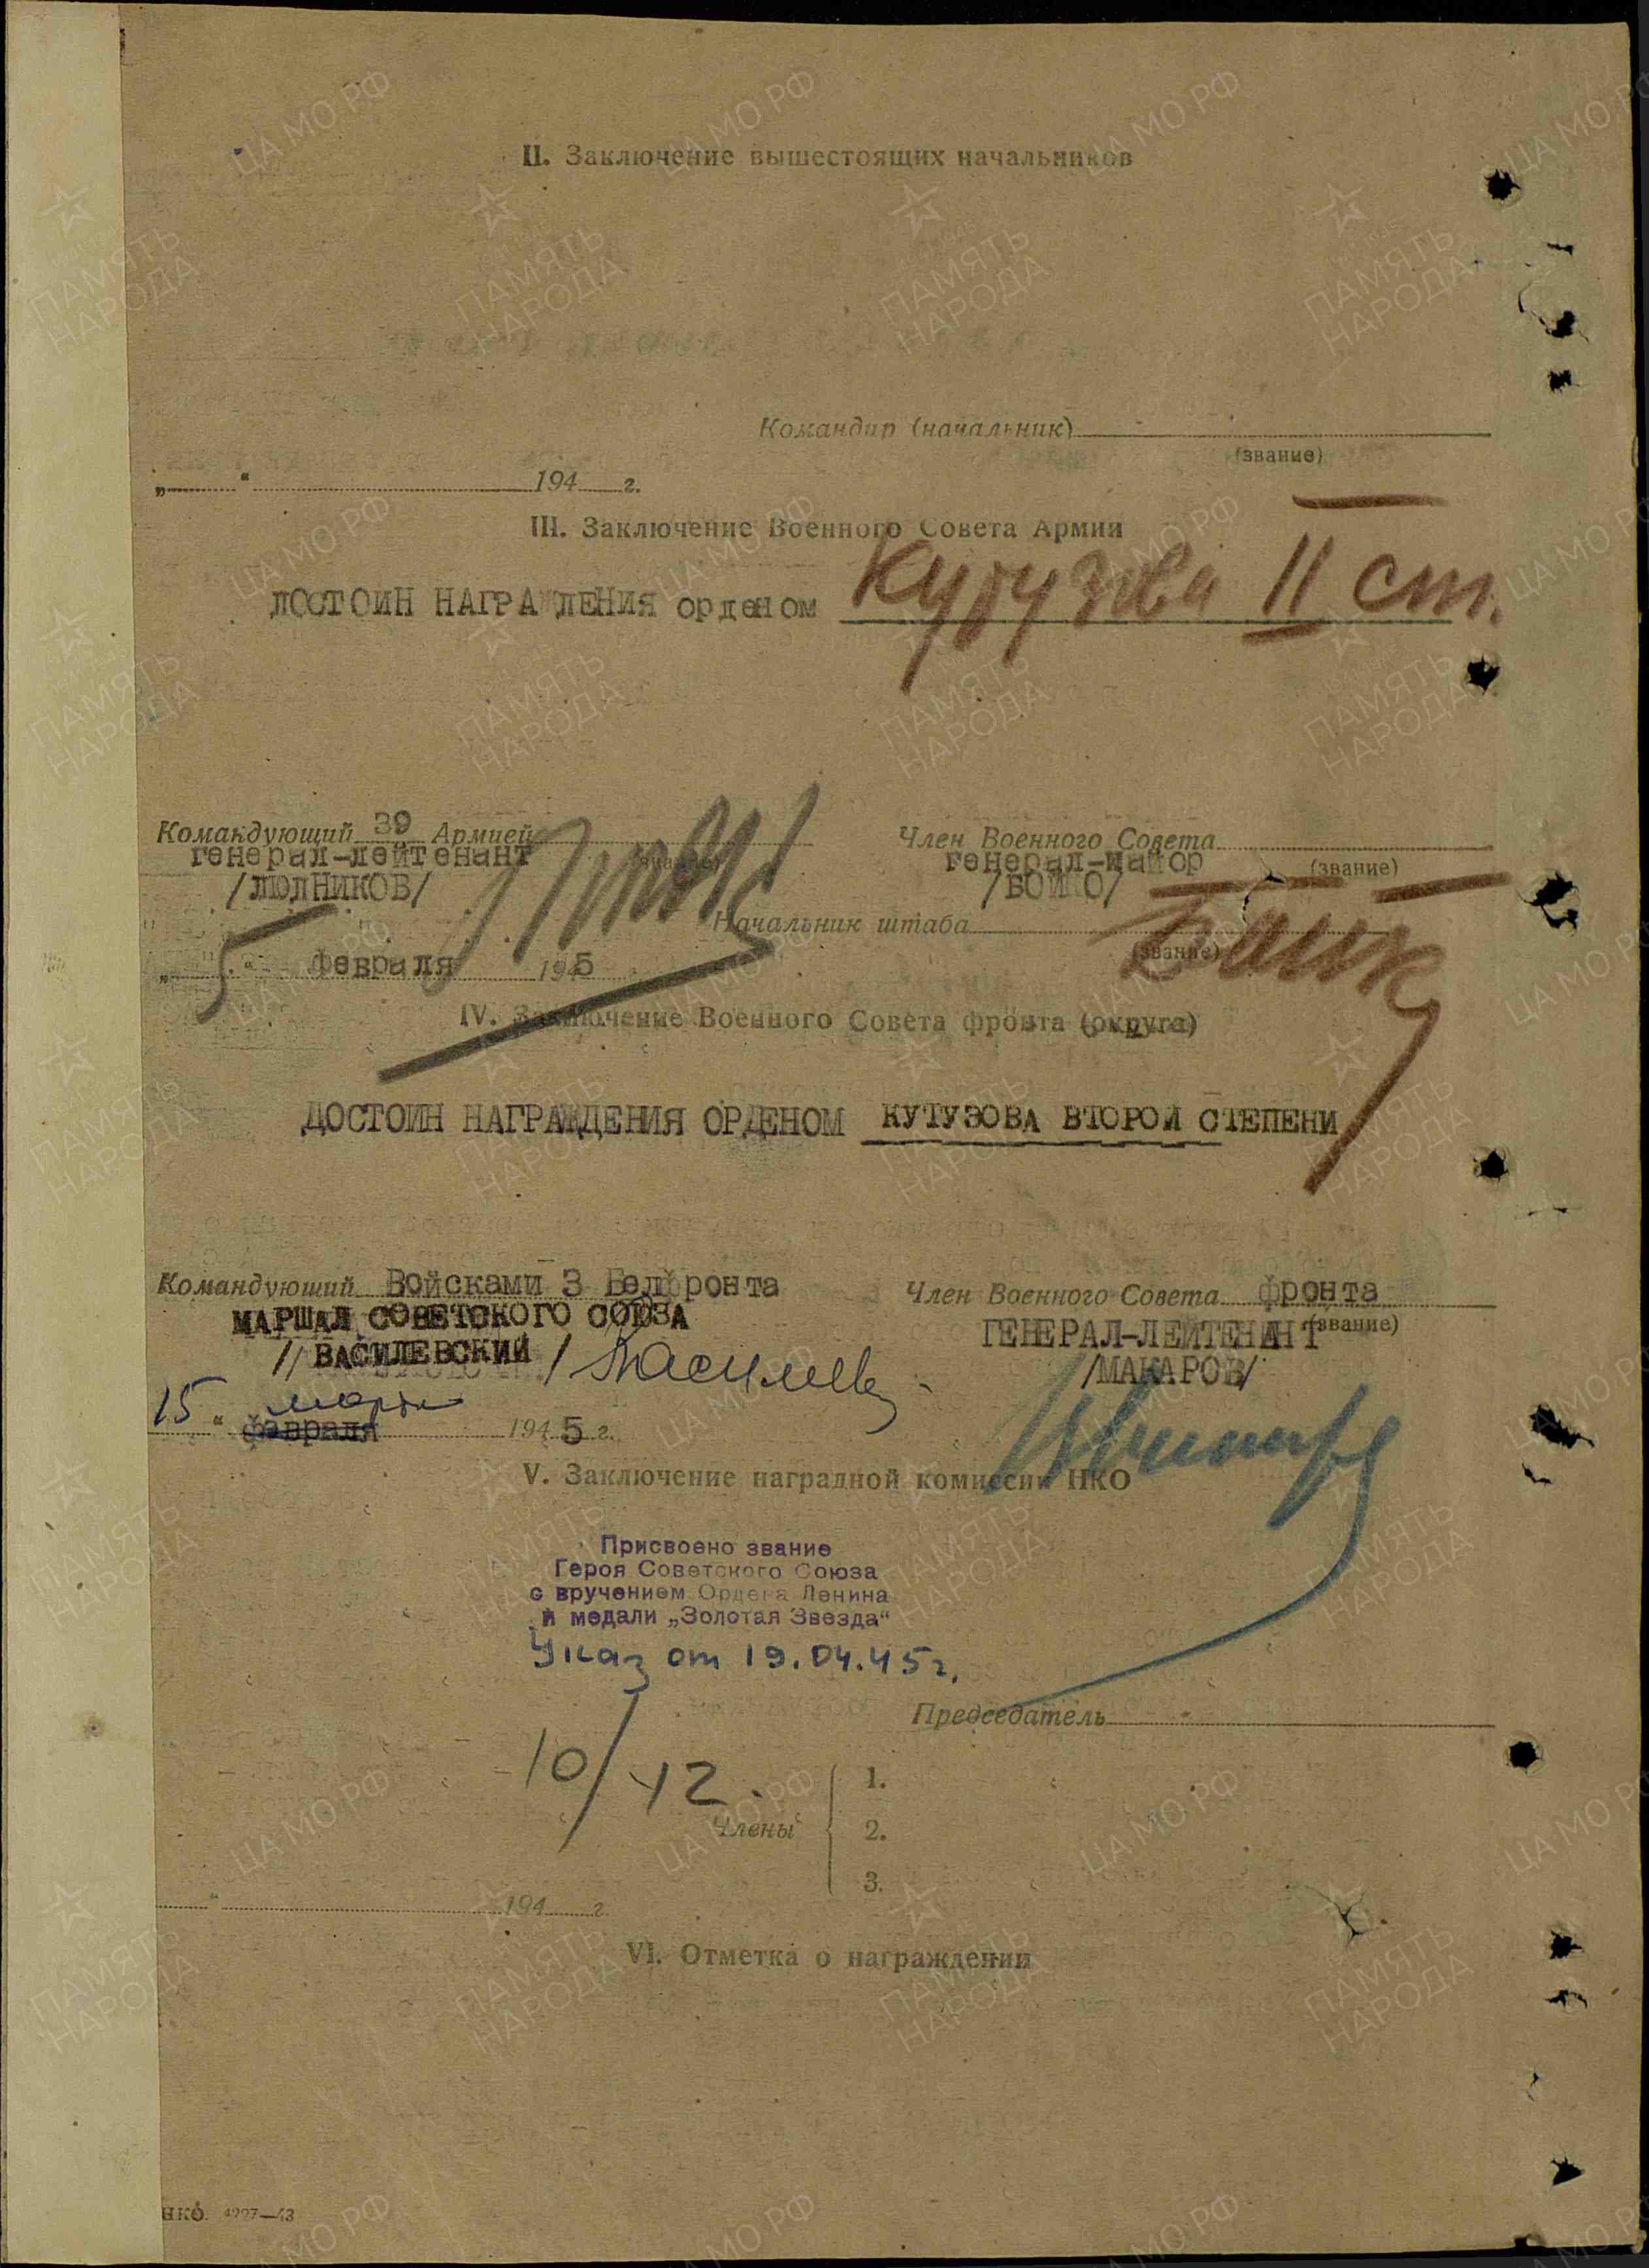 II. Заключение вышестоящих начальников
Командир (начальник)
(звание)
„ “ 194 г.
III. Заключение Военного Совета Армии
ДОСТОИН НАГРАЖДЕНИЯ орденом Кутузова II ст.
Командующий 39 Армией
генерал-лейтенант (звание)
/ЛЮДНИКОВ/
Член Военного Совета
генерал-майор (звание)
/БОЙКО/
Начальник штаба
(звание)
„5“ февраля 1945
IV. Заключение Военного Совета фронта (округа)
ДОСТОИН НАГРАЖДЕНИЯ ОРДЕНОМ КУТУЗОВА ВТОРОЙ СТЕПЕНИ
Командующий Войсками 3 Белфронта
МАРШАЛ СОВЕТСКОГО СОЮЗА
/ВАСИЛЕВСКИЙ/
Член Военного Совета фронта
ГЕНЕРАЛ-ЛЕЙТЕНАНТ (звание)
/МАКАРОВ/
15 “ марта
февраля 1945 г.
V. Заключение наградной комиссии НКО
Присвоено звание
Героя Советского Союза
с вручением Ордена Ленина
и медали „Золотая Звезда“
Указ от 19.04.45 г.
Председатель
10/42.
Члены
1.
2.
3.
“ 194 г.
VI. Отметка о награждении
НКО. 4227—43
ЦА МО РФ
ПАМЯТЬ
НАРОДА